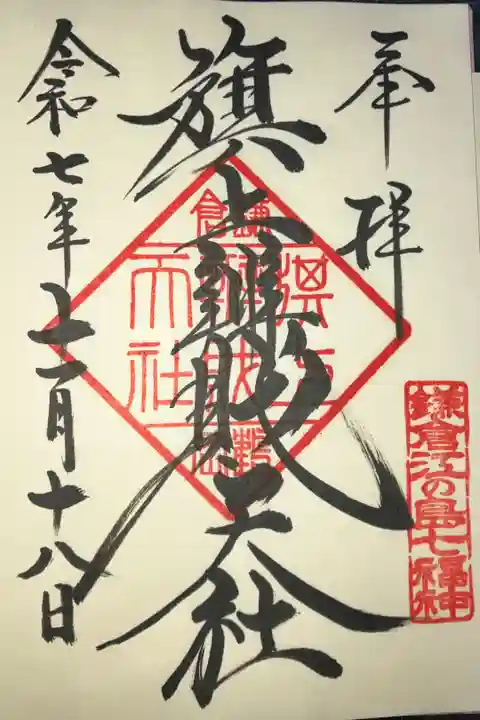 奉拝
旗上辨財天社
令和七年十一月十八日
鎌倉江の島七福神
鎌倉
天社